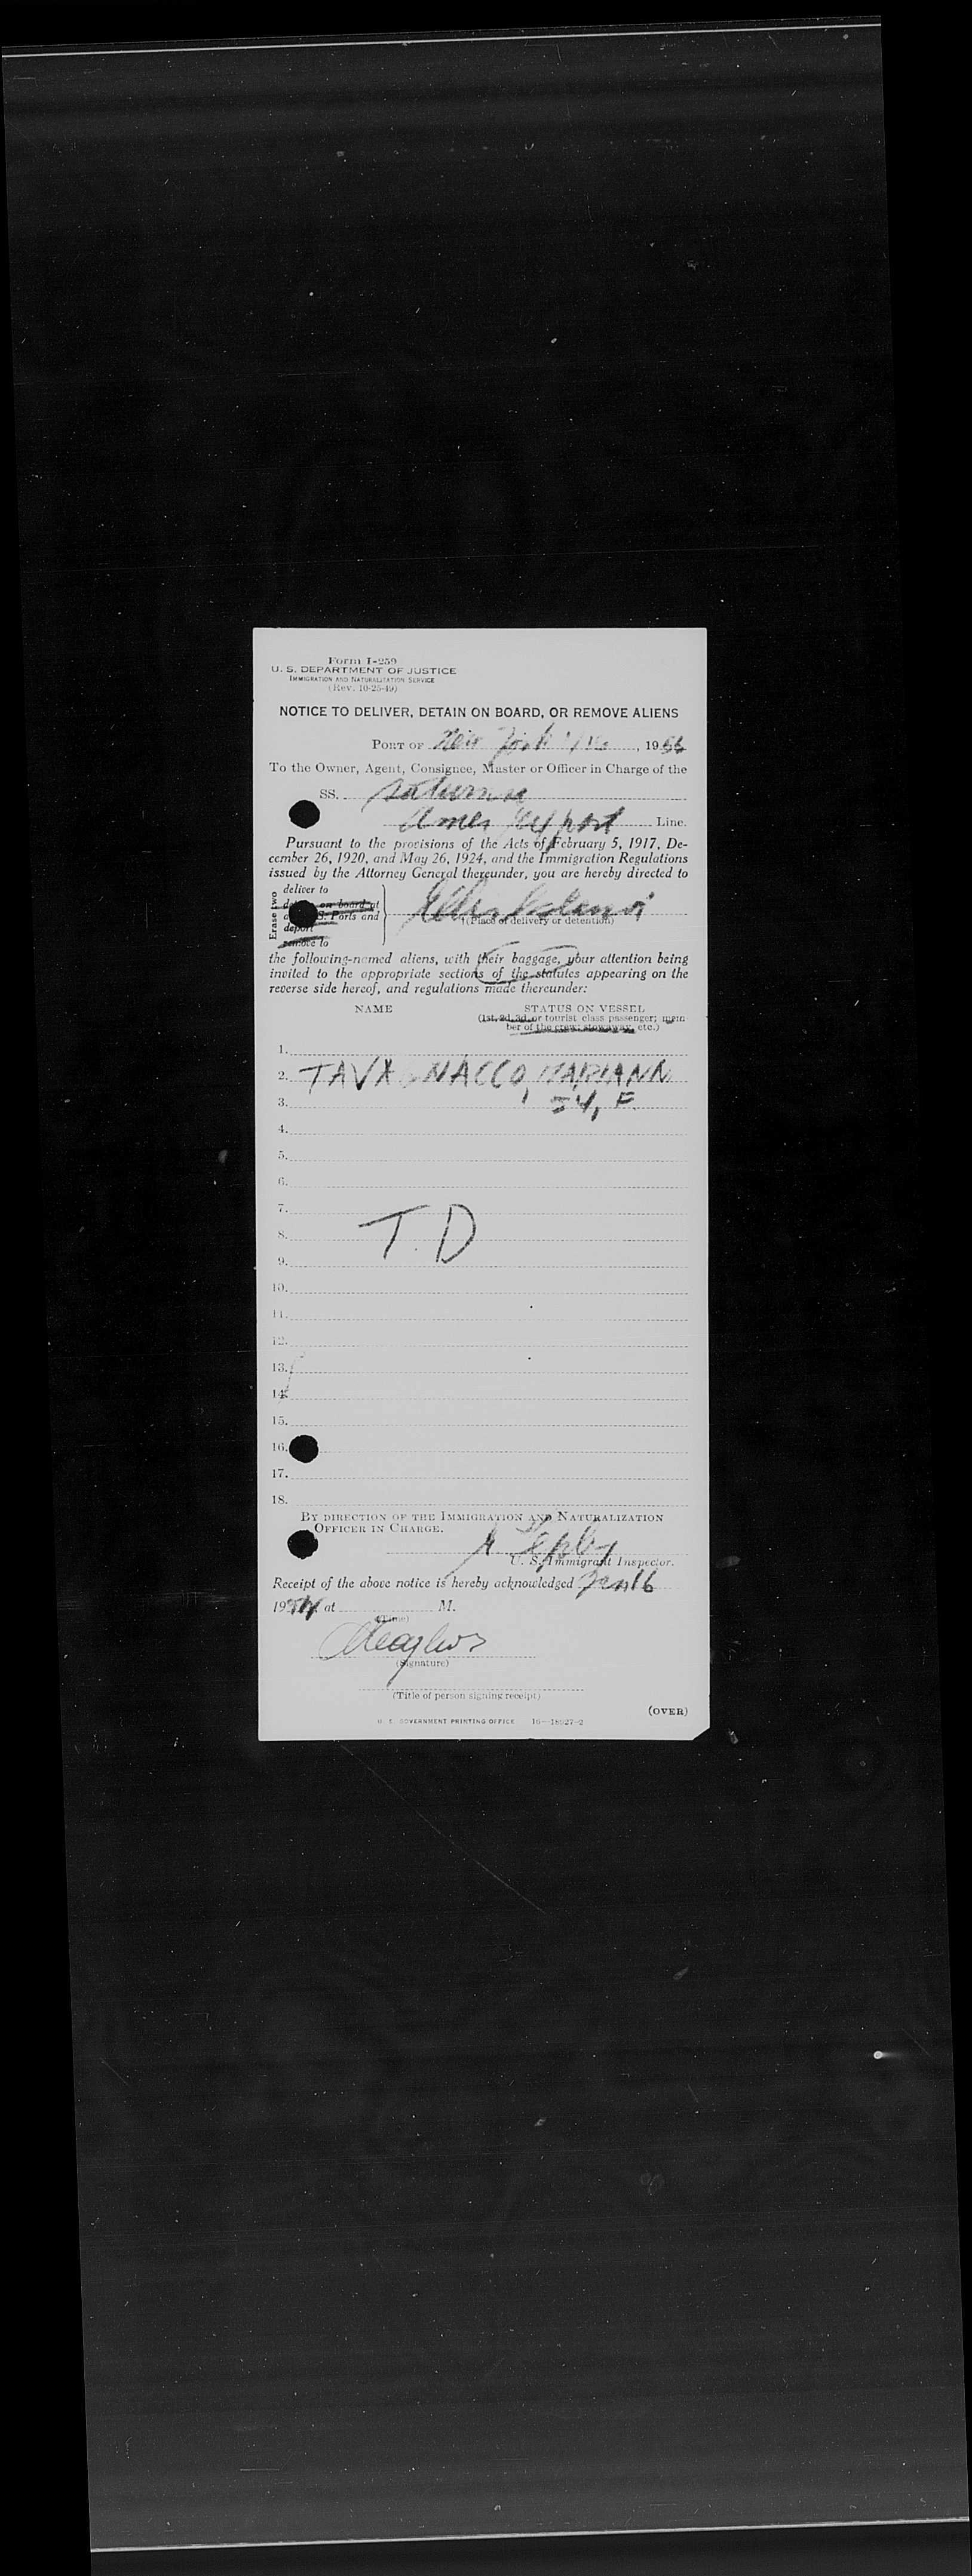 Form I-259
U. S. DEPARTMENT OF JUSTICE
IMMIGRATION AND NATURALIZATION SERVICE
(Rev. 10-25-49)
NOTICE TO DELIVER, DETAIN ON BOARD, OR REMOVE ALIENS
PORT OF New York 1/16, 19
To the Owner, Agent, Consignee, Master or Officer in Charge of the
SS. Saturnia
Amer Export Line.
Pursuant to the provisions of the Acts of February 5, 1917, De-
cember 26, 1920, and May 26, 1924, and the Immigration Regulations
issued by the Attorney General thereunder, you are hereby directed to
Erase two
deliver to
on board at
S. Ports and
deport
remove to
Ellis Island
(Place of delivery or detention)
the following-named aliens, with their baggage, your attention being
invited to the appropriate sections of the statutes appearing on the
reverse side hereof, and regulations made thereunder:
NAME STATUS ON VESSEL
(1st, 2d, 3d, or tourist class passenger; mem-
ber of the crew; stowaway, etc.)
1.
2. NACCO,
3. F.
4.
5.
6.
7.
8. T. D
9.
10.
11.
12.
13.
14.
15.
16.
17.
18.
BY DIRECTION OF THE IMMIGRATION AND NATURALIZATION
OFFICER IN CHARGE.
U. S. Immigrant Inspector.
Receipt of the above notice is hereby acknowledged Jan 16
19 at M.
(Time)
(Signature)
(Title of person signing receipt)
(OVER)
U. S. GOVERNMENT PRINTING OFFICE 16—18027-2